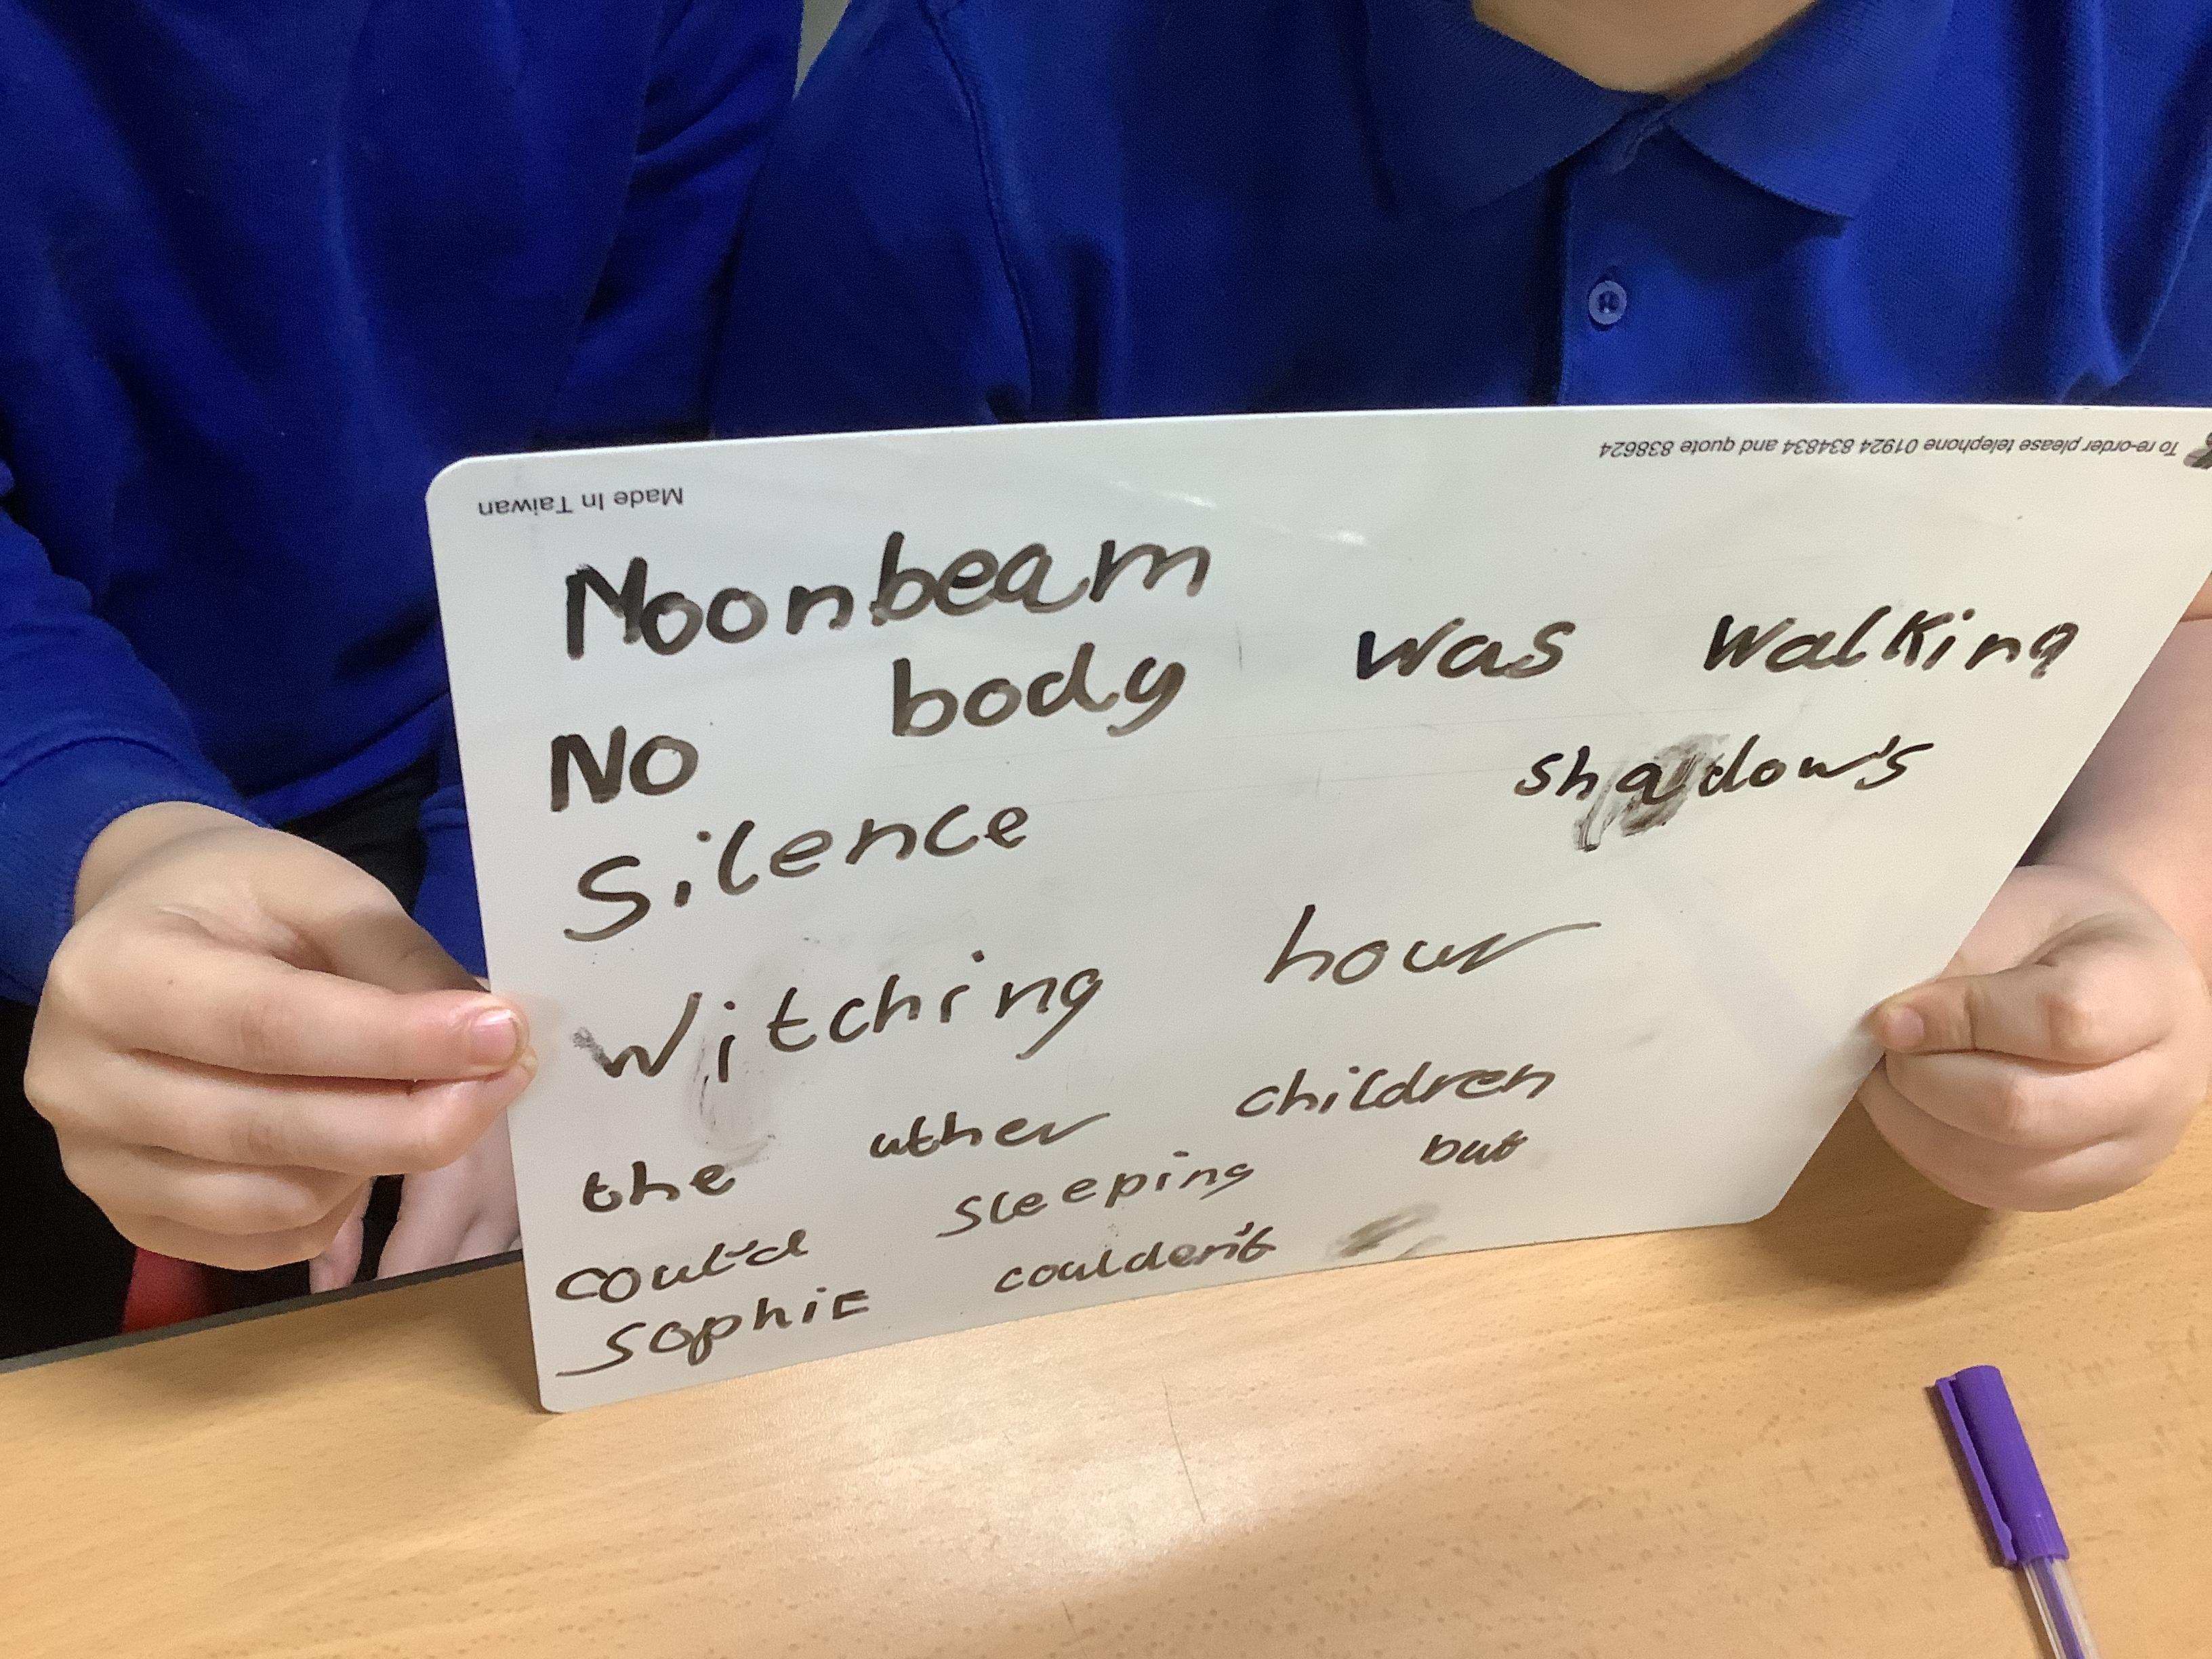 Made In Taiwan
To re-order please telephone 01924 834834 and quote 838624
Moonbeam
No body was walking
Silence shadow's
Witching hour
the uther children
coul'd sleeping but
Sophie coulden't